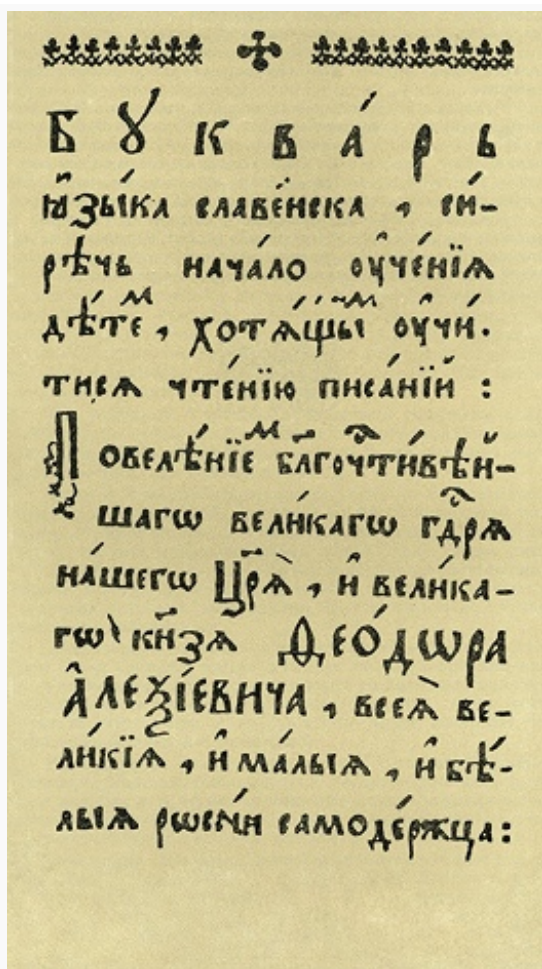 Бꙋква́рь
ꙗ҆зы́ка славе́нска , си́-
рѣчь нача́ло ᲂу҆че́нїѧ
дѣ́темⷨ , хотѧ́щымⷨ ᲂу҆чи́-
тисѧ чте́нїю писа́нїй :
Повелѣ́нїемⷨ бл҃гочⷭ҇ти́вѣй-
шагѡ вели́кагѡ гдⷭ҇рѧ̀
на́шегѡ Цр҃ѧ̀ , и҆ вели́ка-
гѡ кн҃зѧ Ѳео́дѡра
А҆леѯі́евича , всеѧ̀ ве-
ли́кїѧ , и҆ ма́лыѧ , и҆ бѣ́-
лыѧ рѡсси́и самоде́ржца :